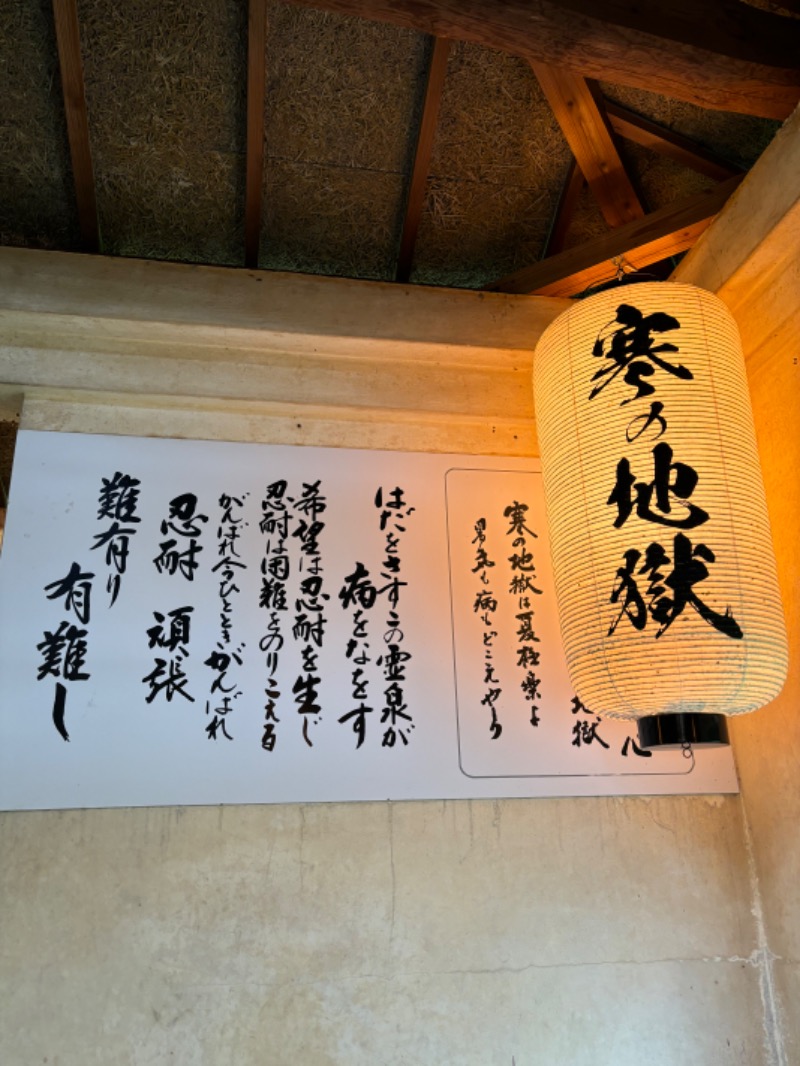 寒の地獄
地獄
寒の地獄は夏極楽よ
暑気も病もどこえやら
はだをさすこの霊泉が
病をなをす
希望は忍耐を生じ
忍耐は困難をのりこえる
がんばれ今ひとときがんばれ
忍耐 頑張
難有り
有難し